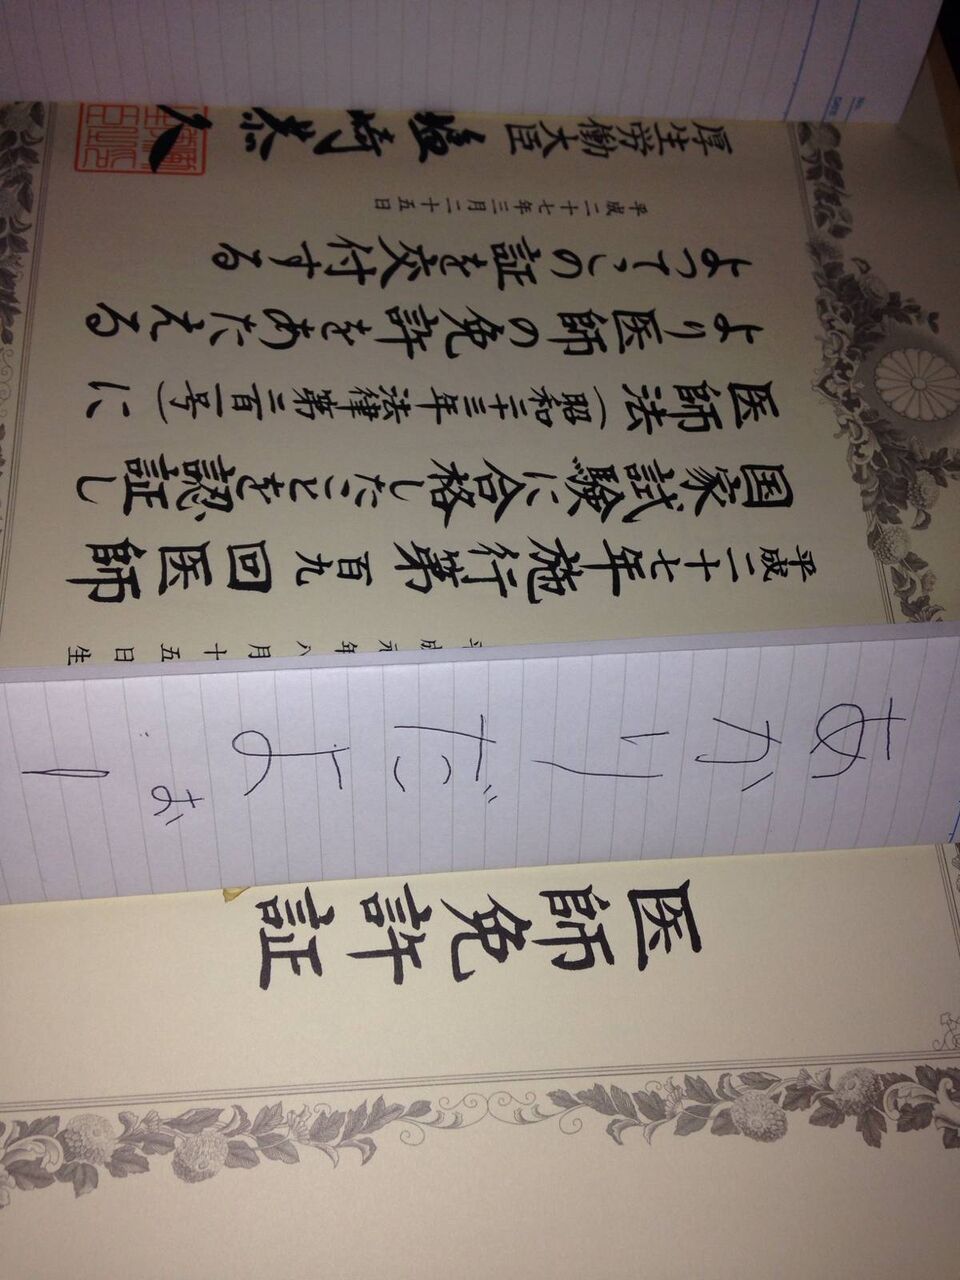 医師免許証
あかりだよぉー
平成元年八月十五日生
平成二十七年施行第百九回医師
国家試験に合格したことを認証し
医師法(昭和二十三年法律第二百一号)に
より医師の免許をあたえる
よってこの証を交付する
平成二十七年三月二十五日
厚生労働大臣 塩崎恭久
No.
Date